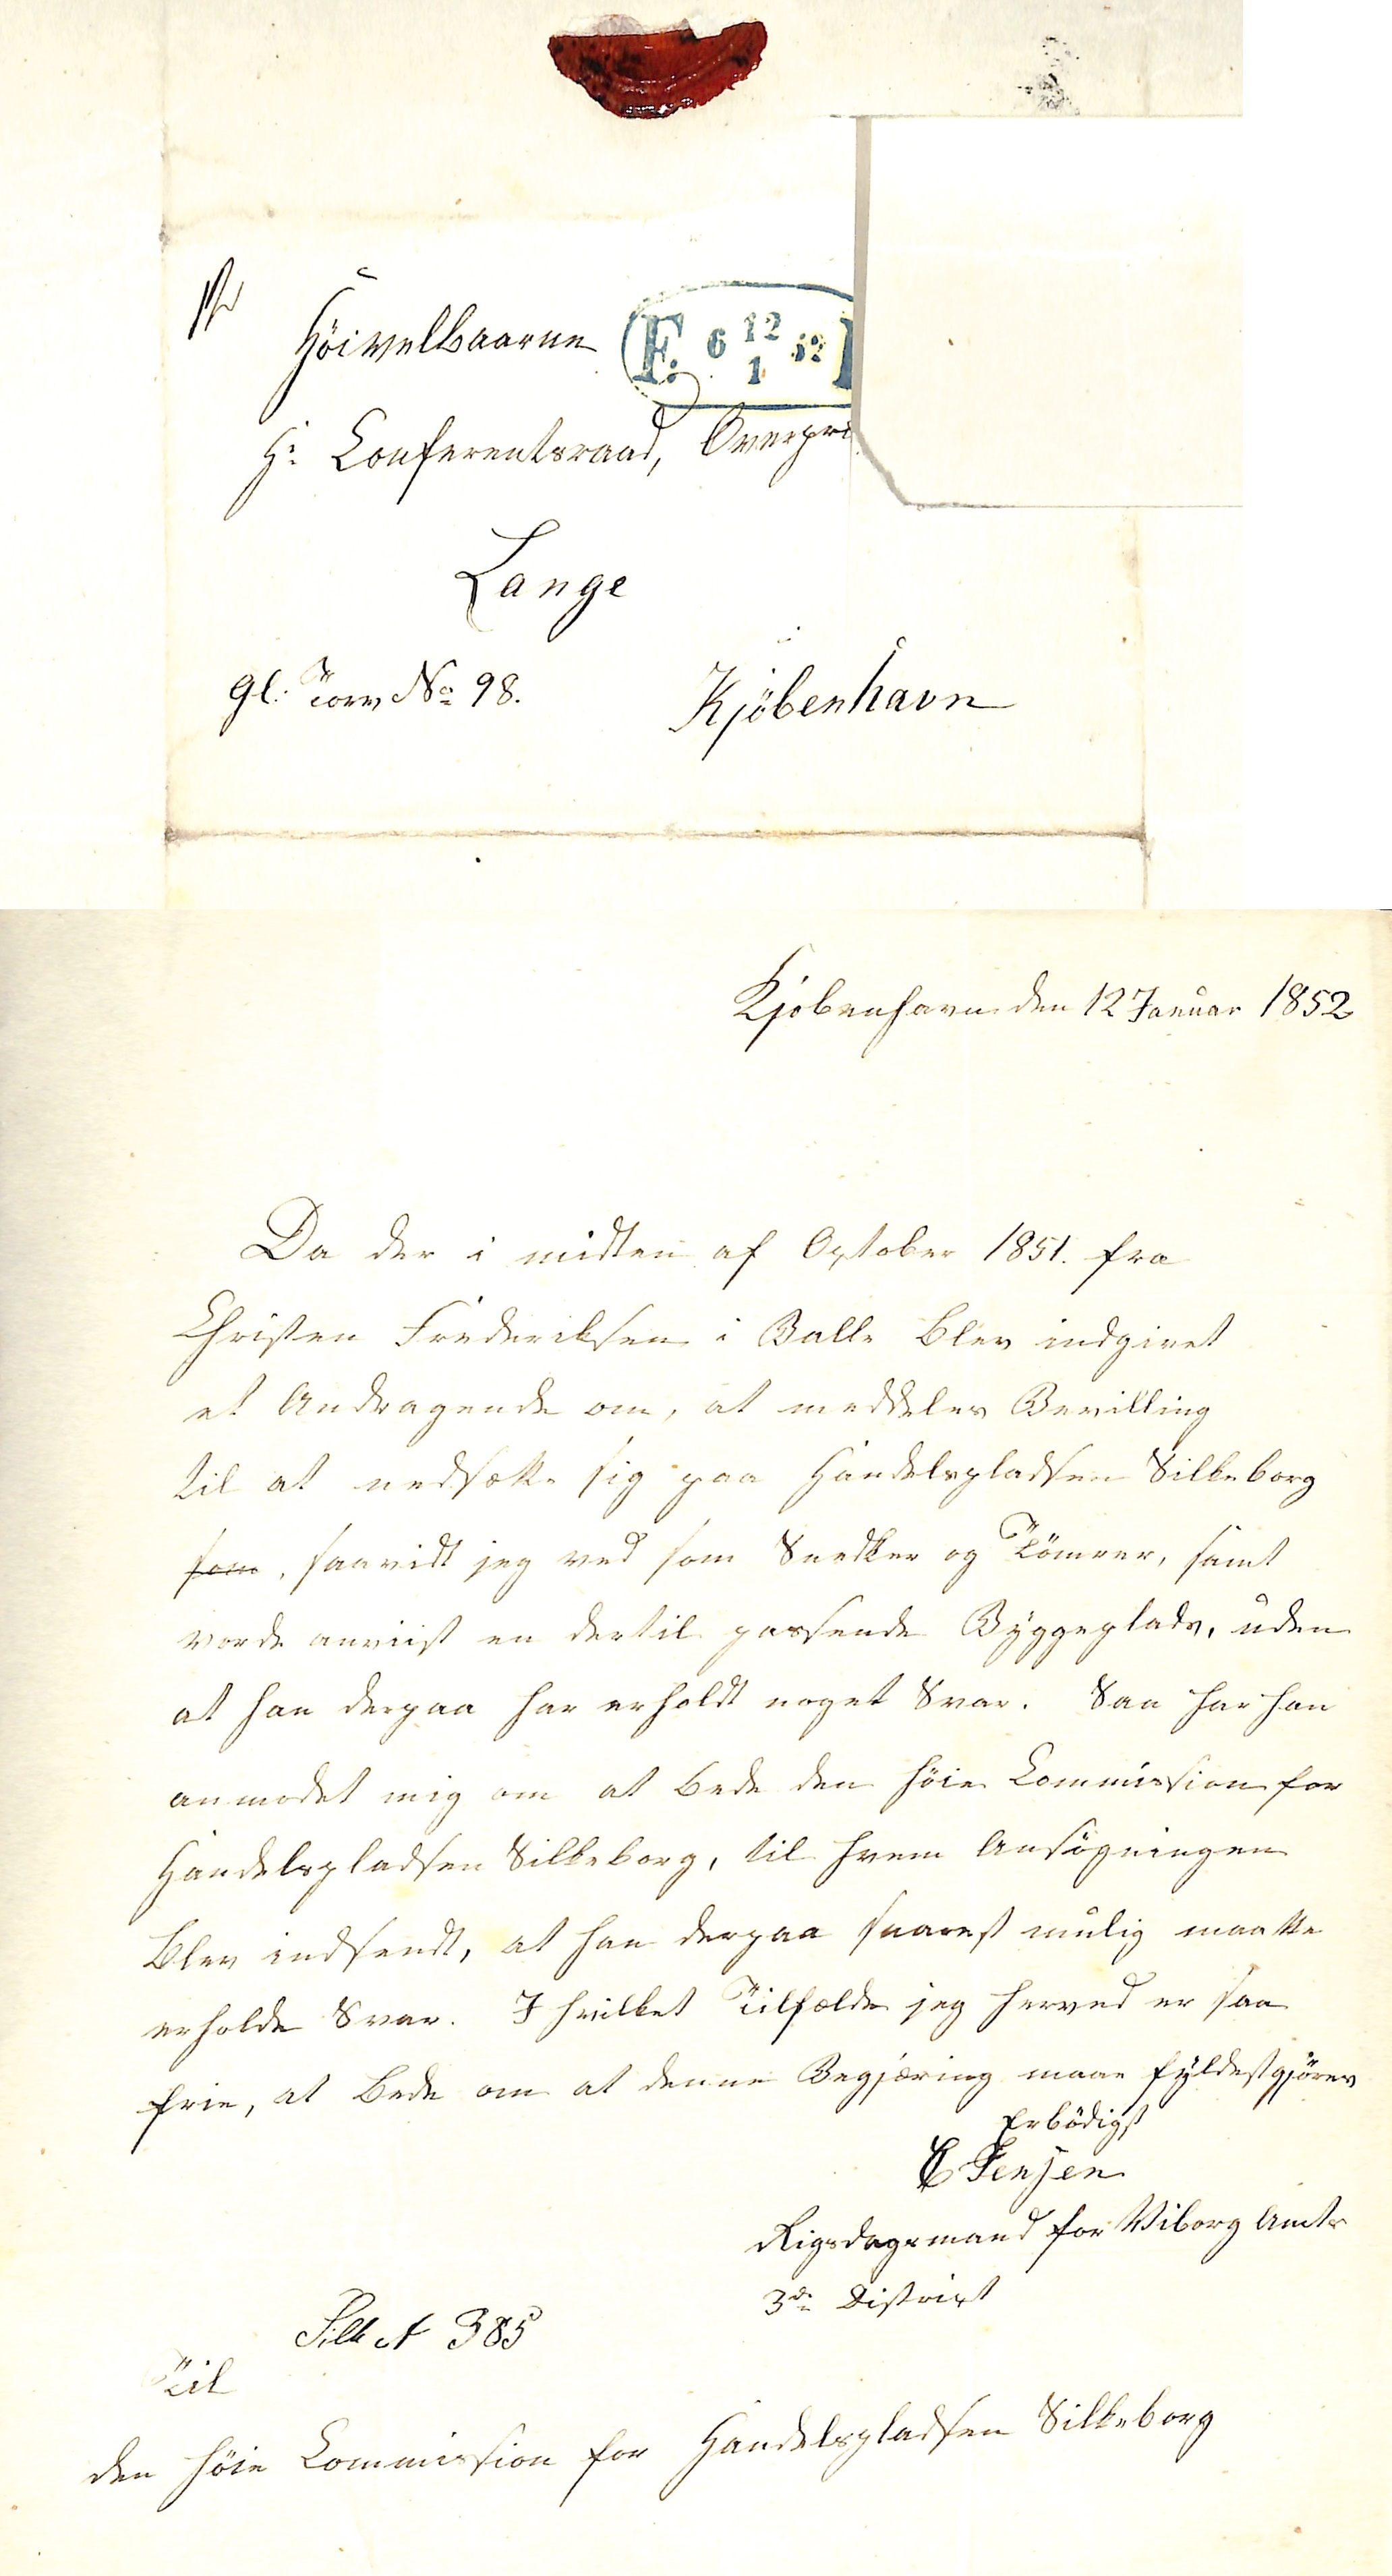 Höivelbaarne
F. 6 12/1 52
Hr. Conferentsraad, Overpr
Lange
gl: Torv No 98.
Kjöbenhavn
Kjobenhavn den 12 Januar 1852
Da der i midten af October 1851. fra
Christen Frederiksen i Balle blev indgivet
et Andragende om, at meddeles Bevilling
til at nedsætte sig paa Handelspladsen Silkeborg
som, saavidt jeg ved som Snedker og Tömrer, samt
vorde anviist en dertil passende Byggeplads, uden
at han derpaa har erholdt noget Svar. Saa har han
anmodet mig om at bede den höie Commission for
Handelspladsen Silkeborg, til hvem Ansögningen
blev indsendt, at han derpaa snarest mulig maatte
erholde Svar. I hvilket Tilfælde jeg herved er saa
frie, at bede om at denne Begjæring maae fyldestgjöres
Erbödigst
C Jensen
Rigsdagsmand for Viborg Amts
3die District
Silk A 385
Til
den höie Commission for Handelspladsen Silkeborg